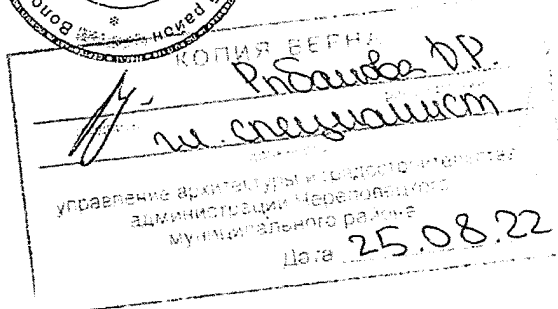 Воло
район
КОПИЯ ВЕРНА
гл. специалист
управление архитектуры и градостроительства
администрации Череповецкого
муниципального района
Дата 25.08.22